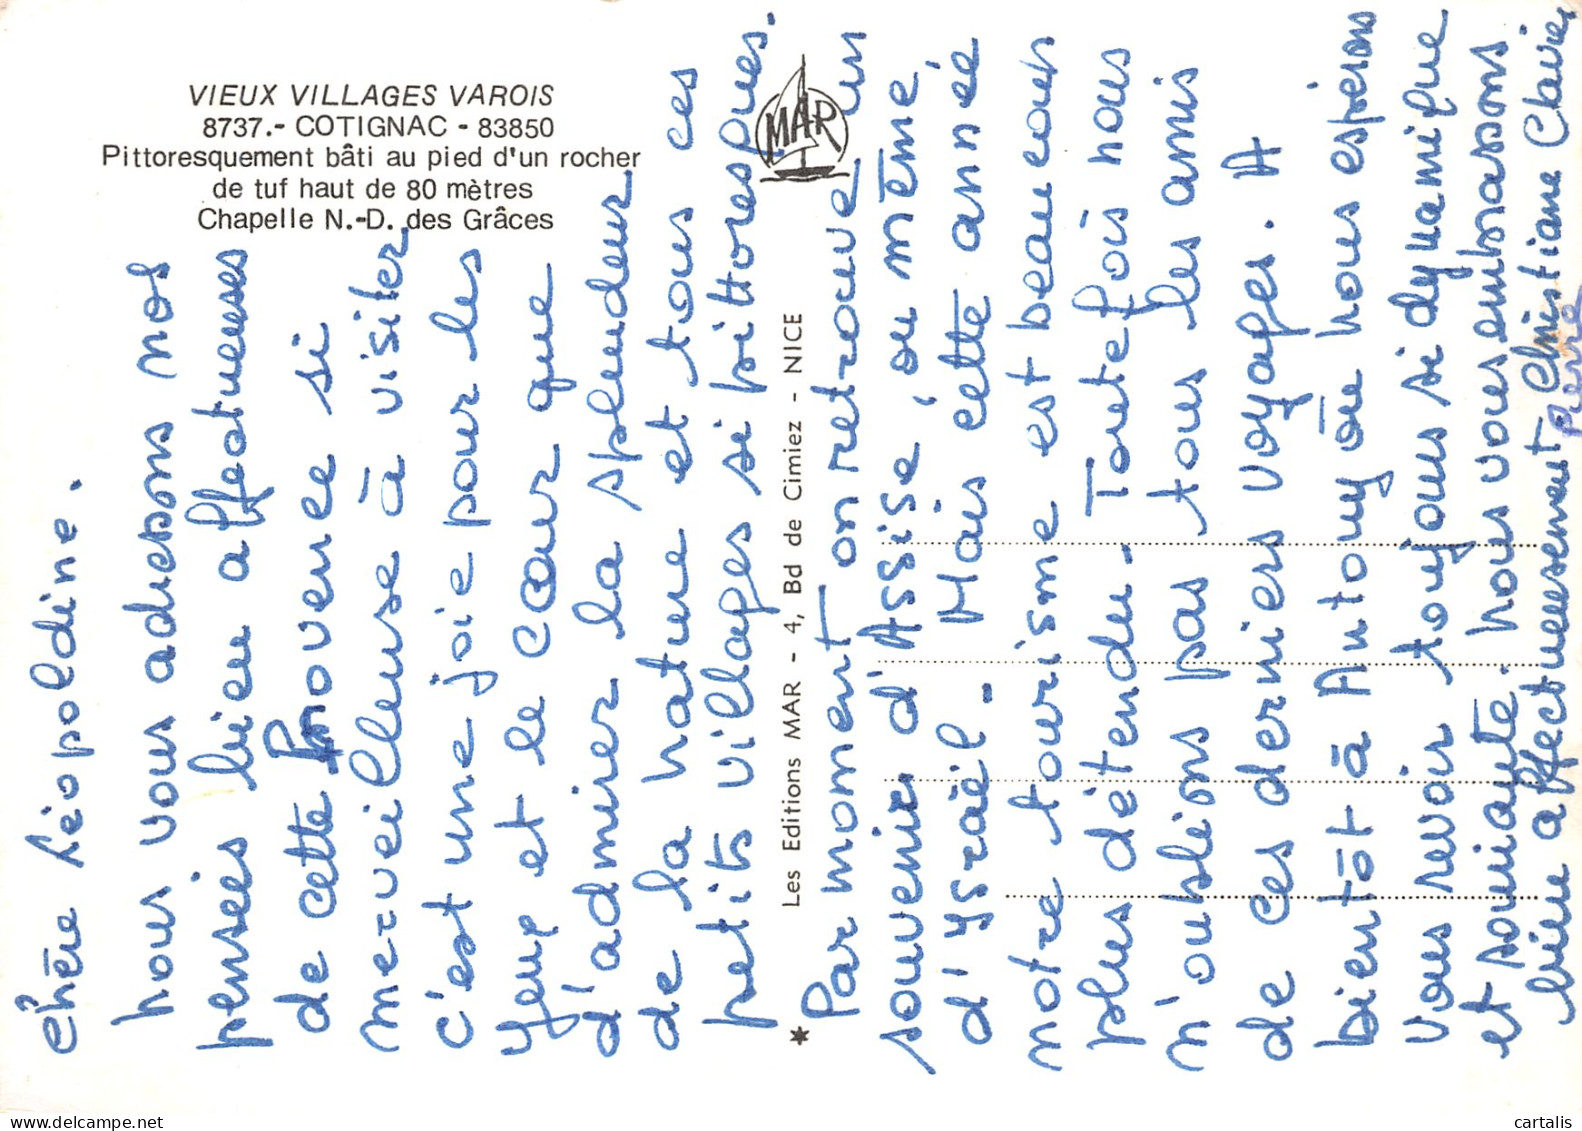 VIEUX VILLAGES VAROIS
8737.- COTIGNAC - 83850
Pittoresquement bâti au pied d'un rocher
de tuf haut de 80 mètres
Chapelle N.-D. des Grâces
MAR
Les Editions MAR - 4, Bd de Cimiez - NICE
Chère Léopoldine.
nous vous adressons nos
pensées bien affectueuses
de cette Provence si
merveilleuse à visiter
c'est une joie pour les
yeux et le cœur que
d'admirer la splendeur
de la nature et tous ces
petits villages si pittoresques.
Par moment on retrouve un
souvenir d'Assise, ou même
d'Ysraël - Mais cette année
notre tourisme est beaucoup
plus détendu - Toutefois nous
n'oublions pas tous les amis
de ces derniers voyages. A
bientôt à Antony où nous espérons
vous revoir toujours si dynamique
et souriante. nous vous embrassons
bien affectueusement Christiane Claire
Pierre
cartalis